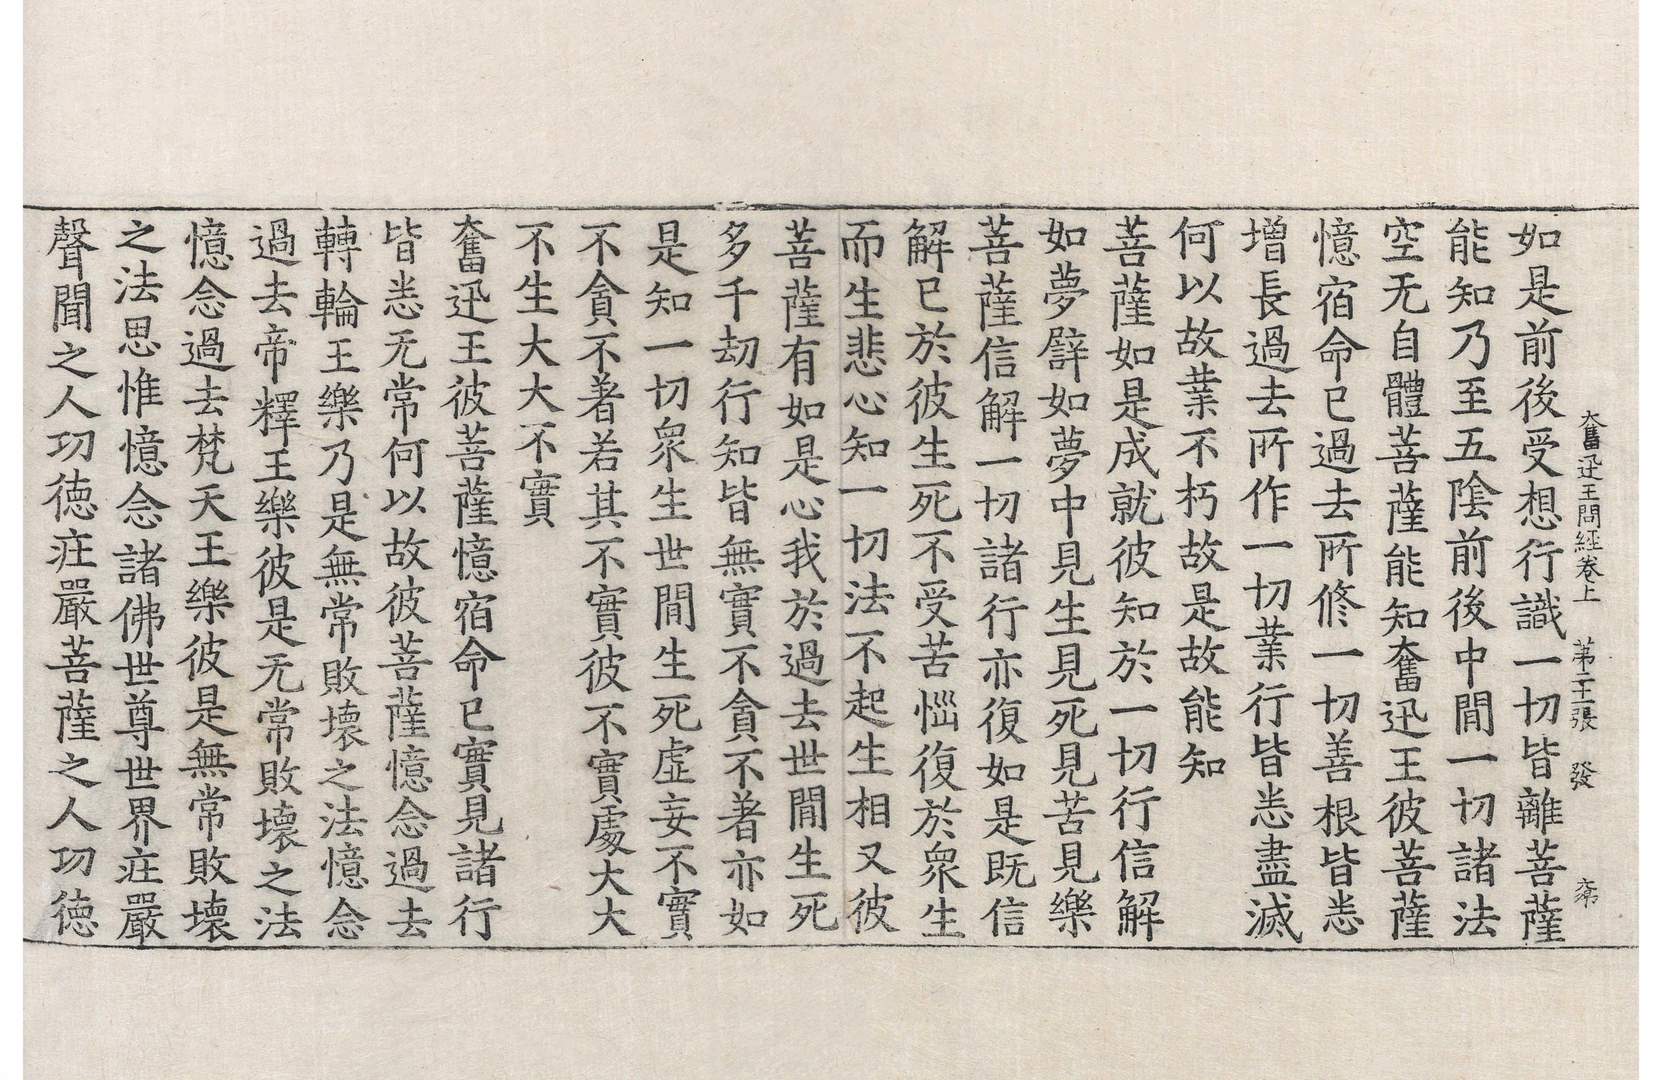 奮迅王問經卷上　第二十二張　發　
如是前後受想行識一切皆離菩薩
能知乃至五陰前後中間一切諸法
空无自體菩薩能知奮迅王彼菩薩
憶宿命已過去所修一切善根皆悉
增長過去所作一切業行皆悉盡滅
何以故業不朽故是故能知
菩薩如是成就彼知於一切行信解
如夢譬如夢中見生見死見苦見樂
菩薩信解一切諸行亦復如是既信
解已於彼生死不受苦惱復於眾生
而生悲心知一切法不起生相又彼
菩薩有如是心我於過去世間生死
多千劫行知皆無實不貪不著亦如
是知一切眾生世間生死虛妄不實
不貪不著若其不實彼不實處大大
不生大大不實
奮迅王彼菩薩憶宿命已實見諸行
皆悉无常何以故彼菩薩憶念過去
轉輪王樂乃是無常敗壞之法憶念
過去帝釋王樂彼是无常敗壞之法
憶念過去梵天王樂彼是無常敗壞
之法思惟憶念諸佛世尊世界庄嚴
聲聞之人功德庄嚴菩薩之人功德